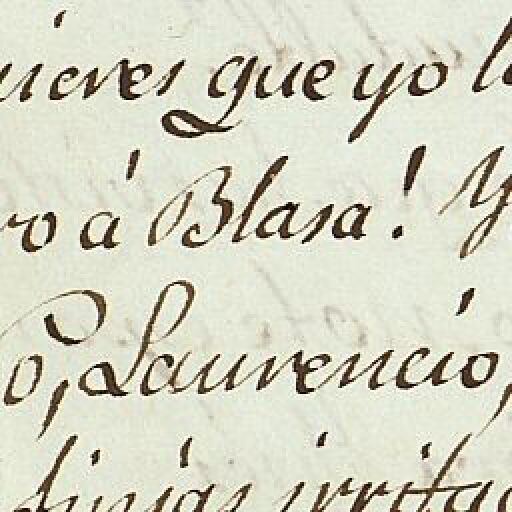 uieres que yo l
ro á Blasa! Y
o, Laurencio,